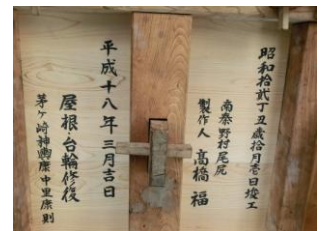 昭和拾貳丁丑歳拾月壱日竣工
南秦野村尾尻
製作人 高橋 福
平成十八年三月吉日
屋根・台輪修復
茅ヶ崎神輿康 中里康則